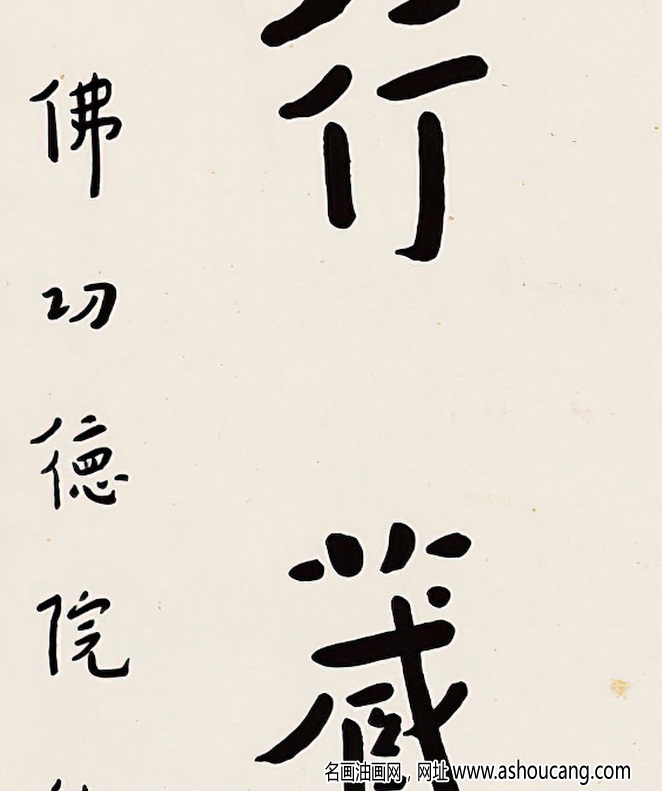 行藏
佛功德院
名画油画网，网址 www.ashoucang.com